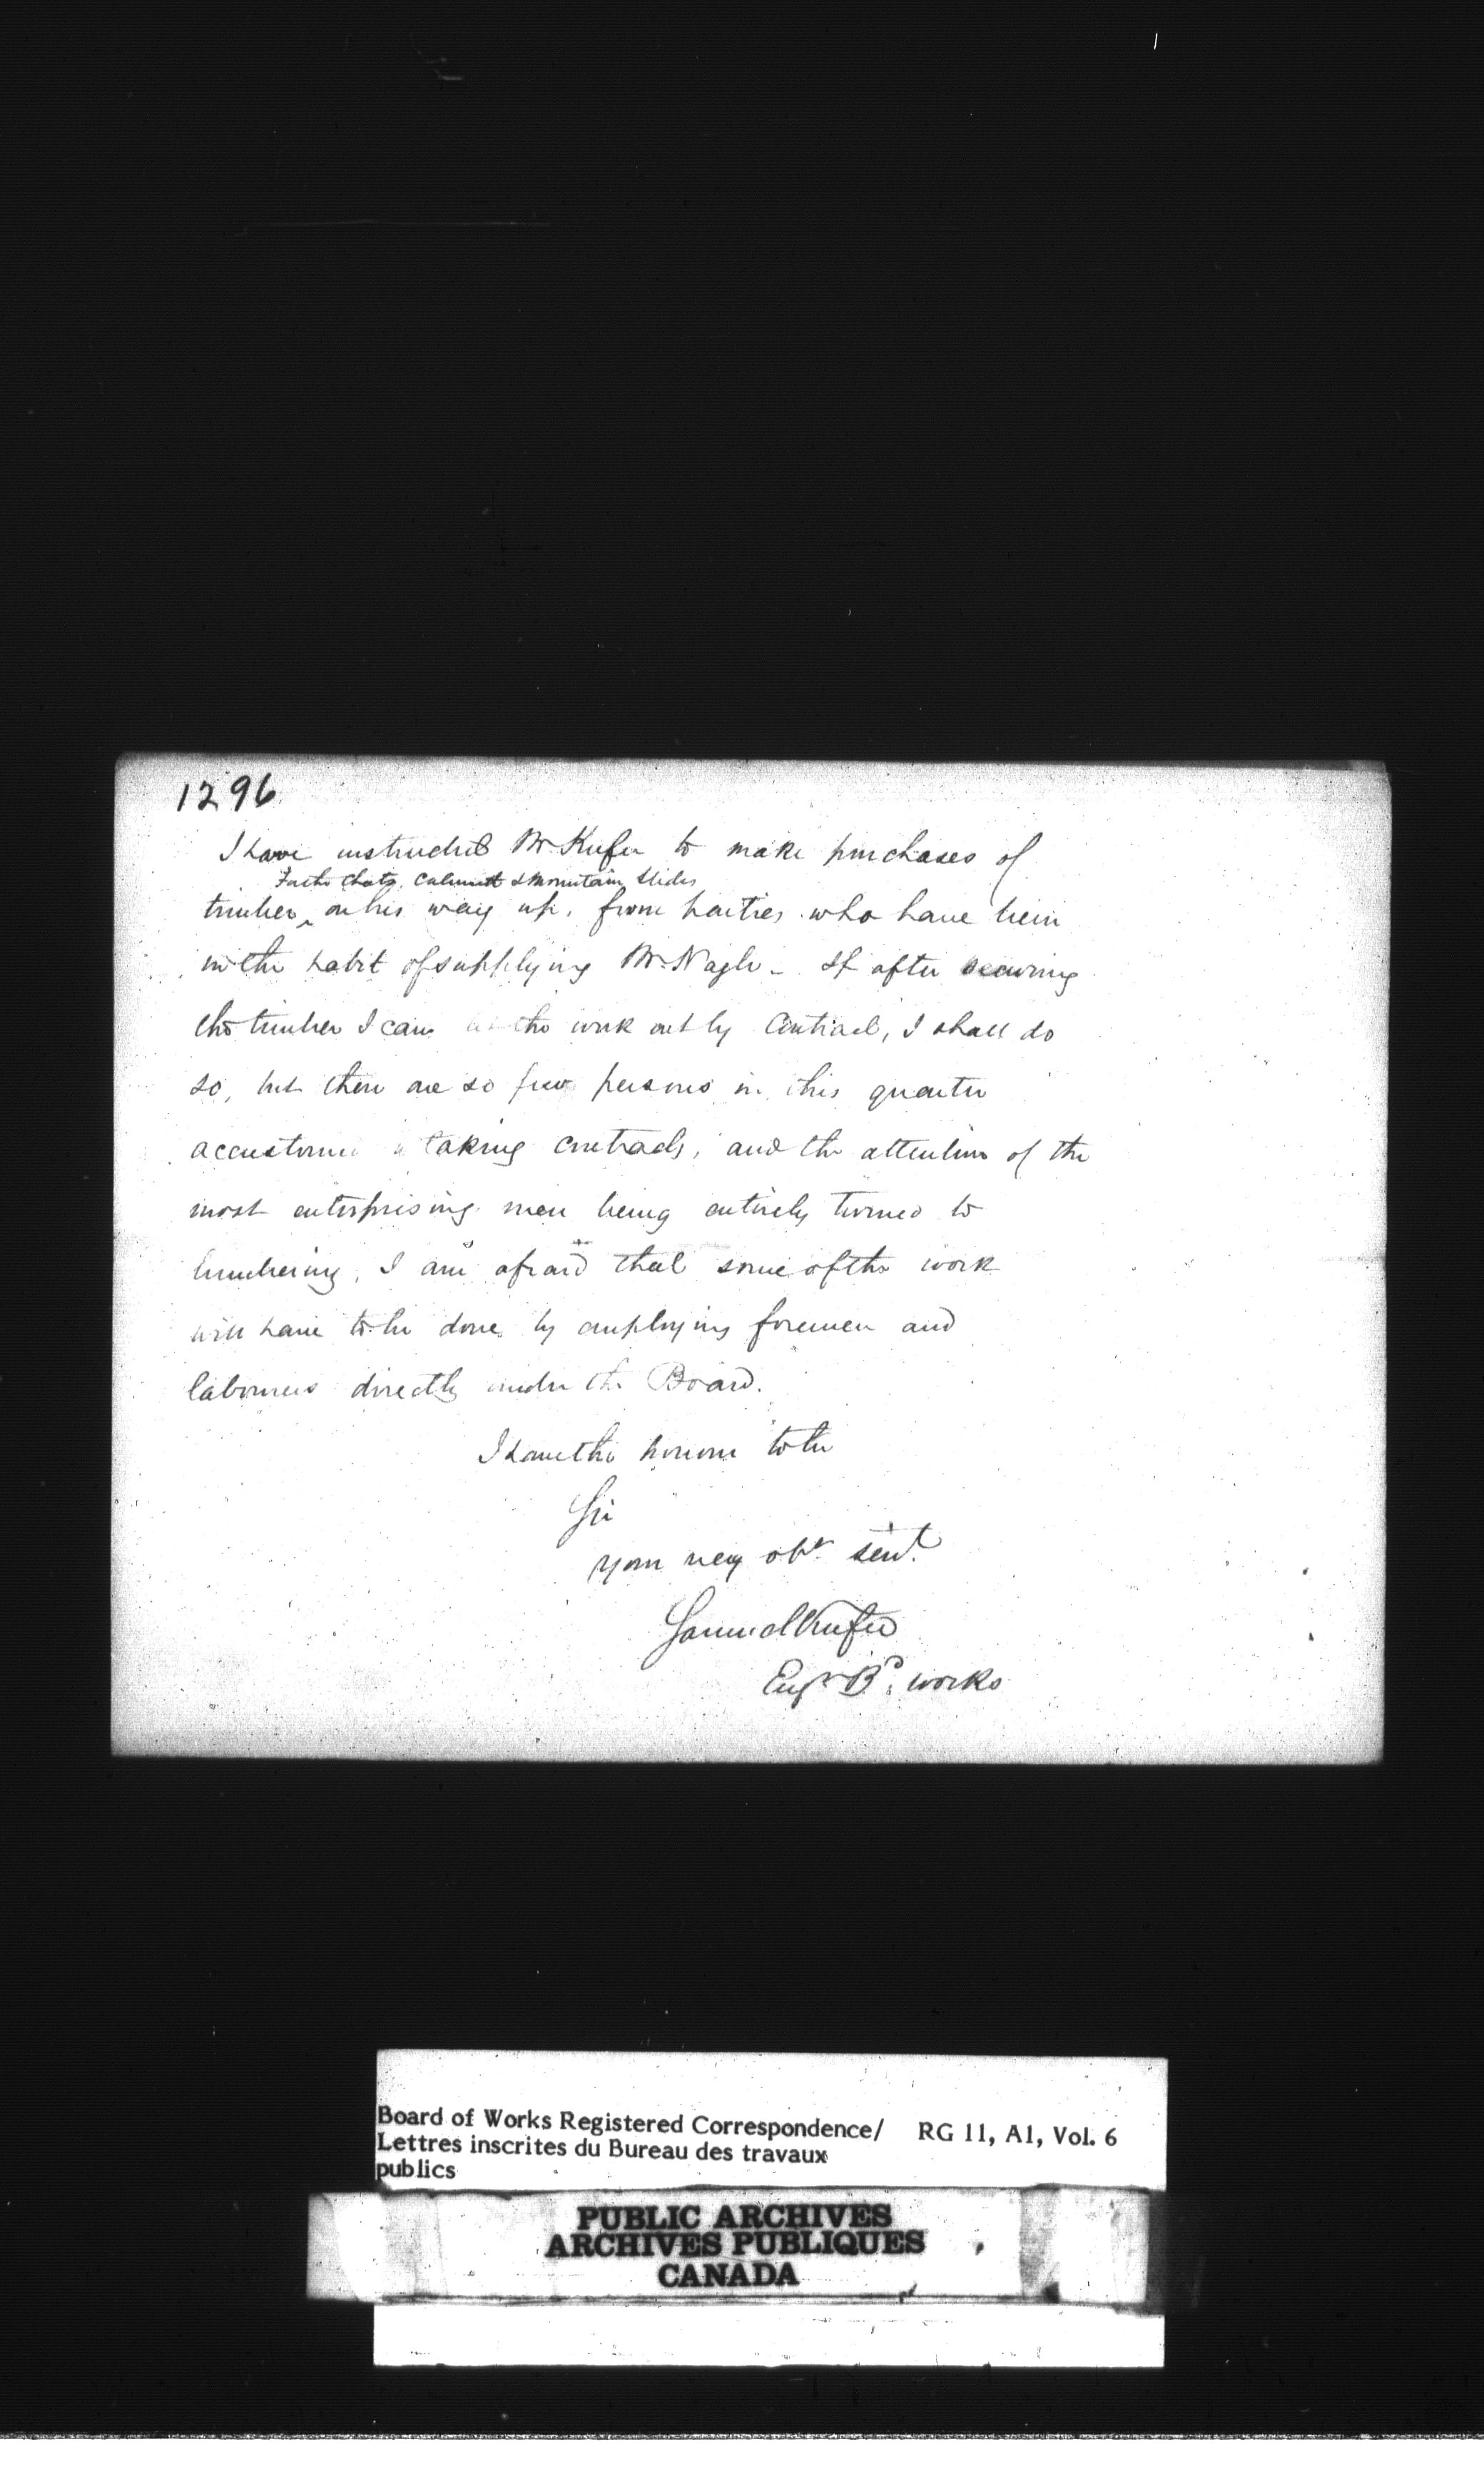 1296
I have instructed Mr Keefer to make purchases of
For the Chats, Calumet & Mountain Slides
timber, on his way up, from parties who have been
in the habit of supplying Mr. Nagle - If after securing
the timber I can let the work out by Contract, I shall do
so, but there are so few persons in this quarter
accustomed to taking contracts, and the attention of the
most enterprising men being entirely turned to
lumbering, I am afraid that some of the work
will have to be done by employing foremen and
labourers directly under the Board.
I have the honour to be
Sir
your very obt. servt.
Samuel Keefer
Engr Bd. works
Board of Works Registered Correspondence/ RG 11, A1, Vol. 6
Lettres inscrites du Bureau des travaux
publics
PUBLIC ARCHIVES
ARCHIVES PUBLIQUES
CANADA